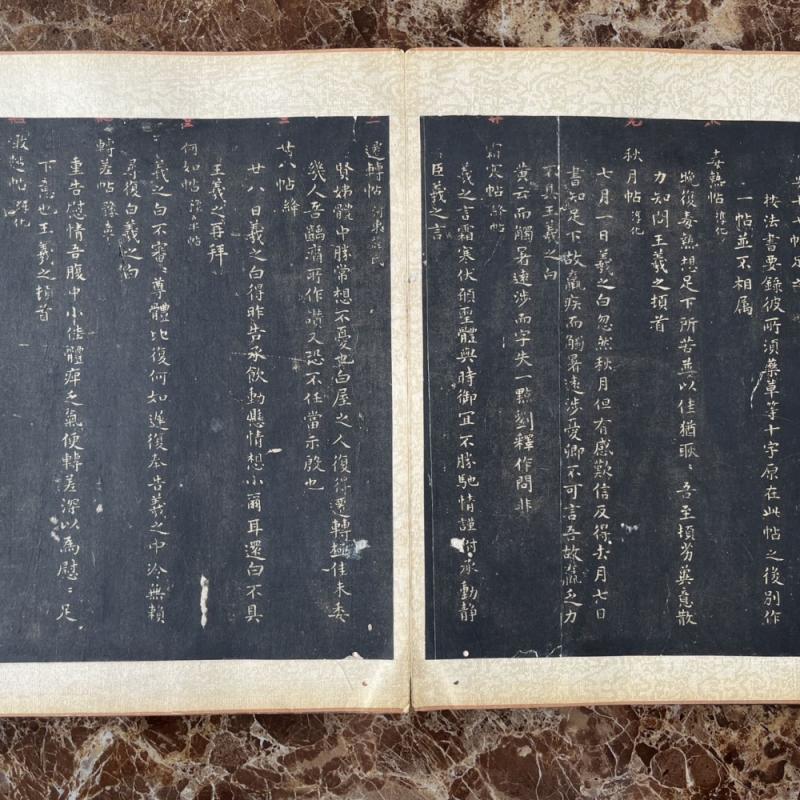 按法書要錄彼所須
草等十字原在此帖之後別作
一帖並不相属
毒熱帖 淳化
晚復毒熱想足下所苦並以佳猶耿耿吾至頓劣冀意散
力知問王羲之頓首
秋月帖 淳化
七月一日羲之白忽然秋月但有感歎信反得去月七日
書知足下故羸疾而觸暑遠涉憂卿不可言吾故羸乏力
不具王羲之白
黄云而觸暑遠涉而字失一點劉釋作問非
霜寒帖 絳帖
羲之言霜寒伏願聖體與時御宜不勝馳情謹付承動静
臣羲之言
遷轉帖
賢姊體中勝常想不憂也白屋之人復得遷轉極佳未委
幾人吾齲痛所作讚又恐不任當示殷也
廿八帖 絳
廿八日羲之白得昨告承飲動懸情想小爾耳還白不具
王羲之再拜
何如帖
羲之白不審尊體比復何如遲復奉告羲之中冷無賴
尋復白羲之白
轉差帖
重告慰情吾腹中小佳體痺乏氣便轉差深以爲慰:足
下意也王羲之頓首
淳化